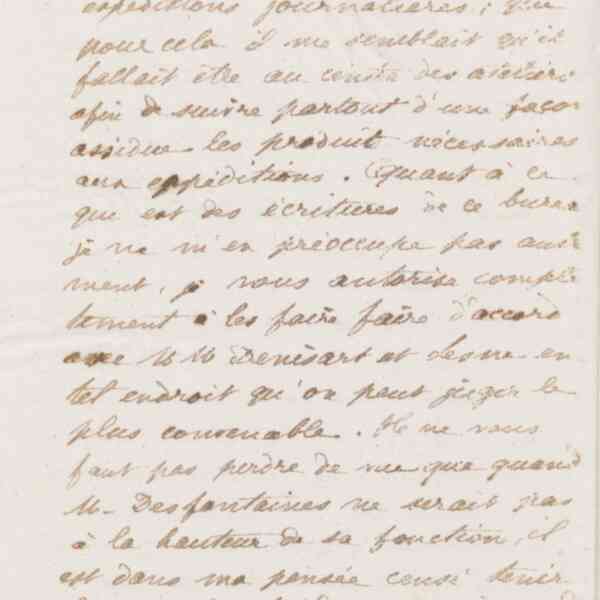 expéditions journalières ; que
pour cela il me semblait qu'il
fallait être au centre des ateliers
afin de suivre partout d'une façon
assidue les produit nécessaires
aux expéditions. Quant à ce
que est des écritures de ce bureau
je ne m'en préoccupe pas autre
ment, je vous autorise complè
tement à les faire faire d'accord
avec MM Denisart et Lesne en
tel endroit qu'on peut juger le
plus convenable. Il ne vous
faut pas perdre de vue que quand
M. Desfontaines ne serait pas
à la hauteur de sa fonction, il
est dans ma pensée censé tenir